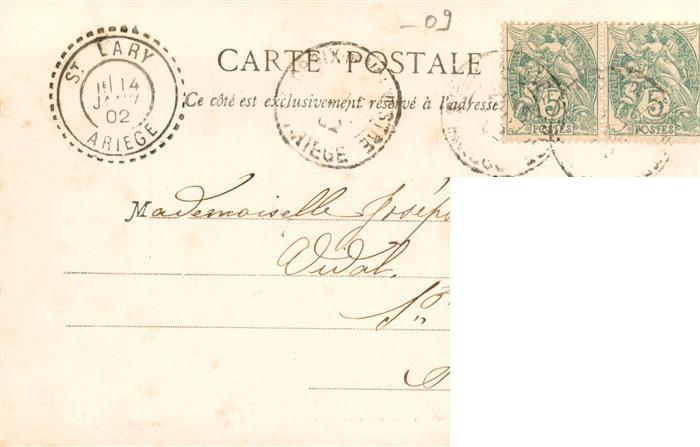 -09
CARTE POSTALE
Ce côté est exclusivement réservé à l'adresse.
ST LARY
14
JANV
02
ARIEGE
02
ARIEGE
5 5
POSTES POSTES
Mademoiselle Josép
Vidal